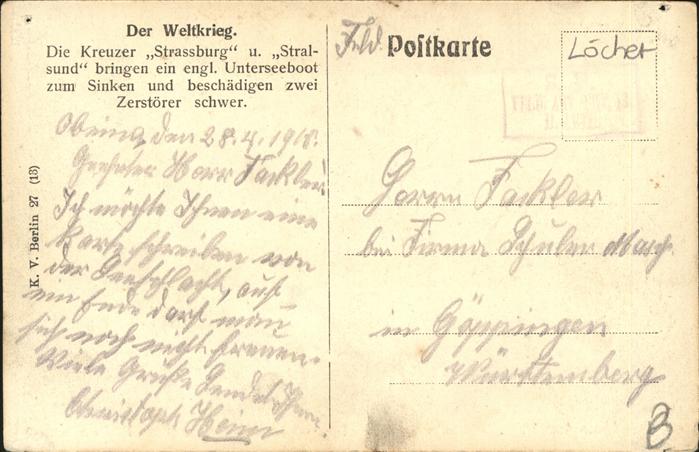 Der Weltkrieg.
Die Kreuzer „Strassburg“ u. „Stral-
sund“ bringen ein engl. Unterseeboot
zum Sinken und beschädigen zwei
Zerstörer schwer.
K. V. Berlin 27 (13)
den 28.4.1918.
Geehrter Herr Fackler
Ich möchte Ihnen eine
Karte schreiben von
der Seeschlacht, auf
ein Ende darf man
sich noch nicht freuen.
Viele Grüße sendet Ihnen
Christoph Heim
Feld Postkarte
Löcher
Herrn Fackler
bei Firma Schuler Masch.
in Göppingen
Württemberg
B